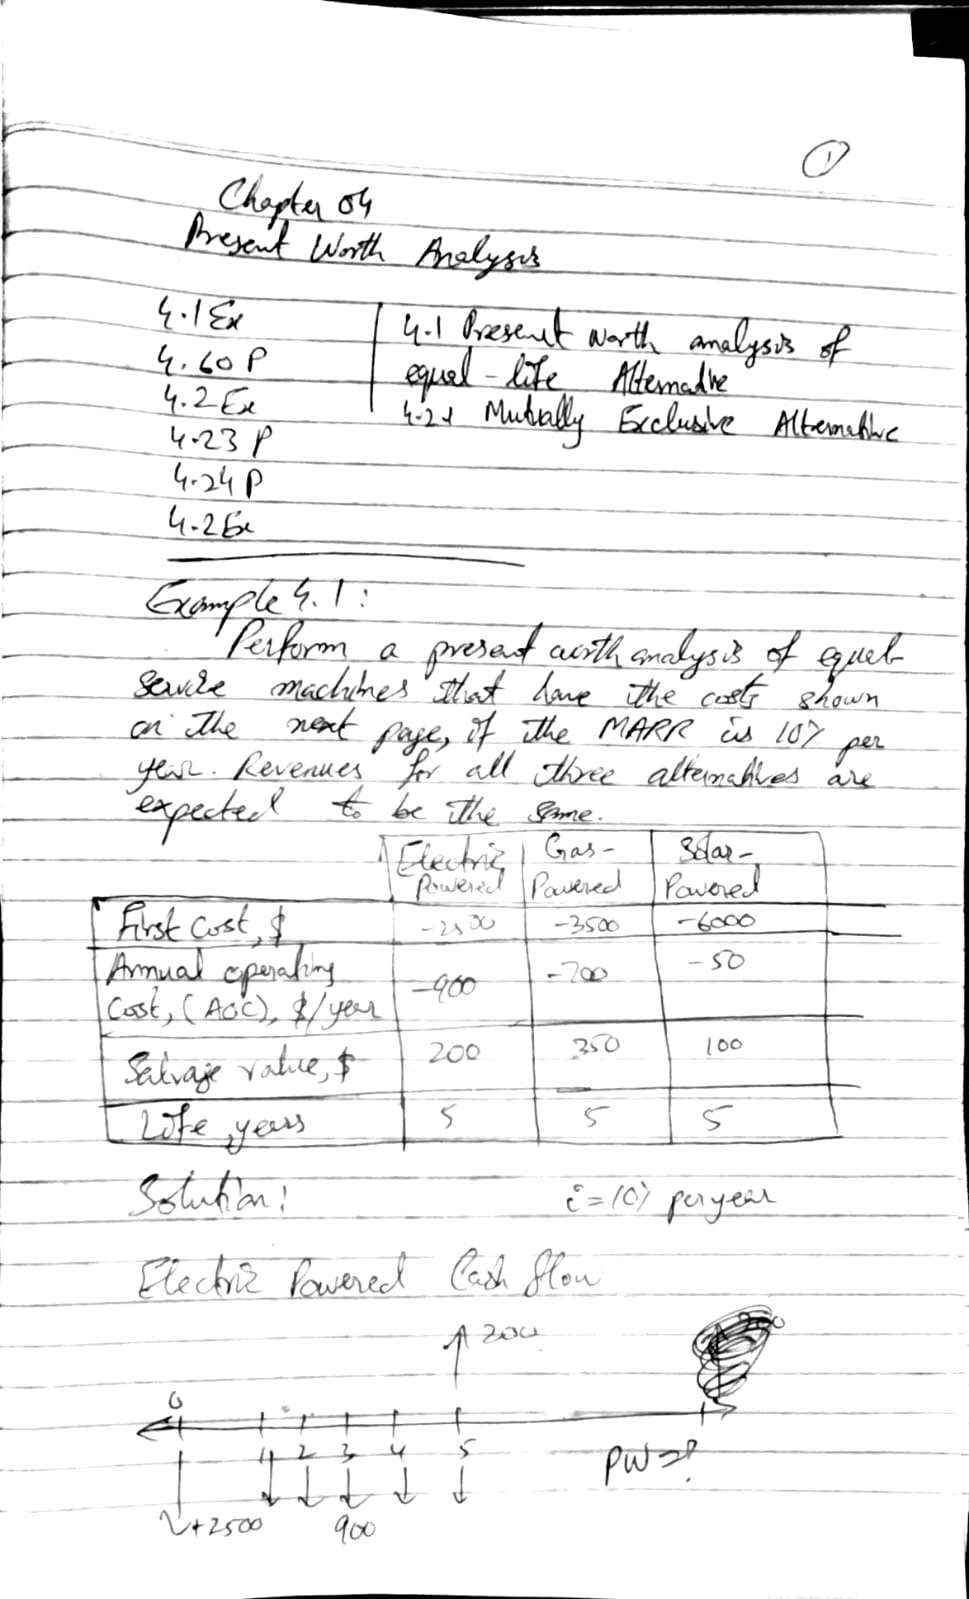 1
Chapter 04
Present Worth Analysis
4.1 Ex
4.60 P
4.2 Ex
4.23 P
4.24 P
4.2 Ex
4.1 Present worth analysis of
equal-life Alternative
4.2 Mutually Exclusive Alternative
Example 4.1:
Perform a present worth analysis of equal
service machines that have the costs shown
on the next page, if the MARR is 10% per
year. Revenues for all three alternatives are
expected to be the same.
Electric Powered Gas-Powered Solar-Powered
First Cost, $ -2500 -3500 -6000
Annual operating Cost, (AOC), $/year -900 -700 -50
Salvage value, $ 200 350 100
Life, years 5 5 5
Solution: i = 10% per year
Electric Powered Cash flow
200
0
1 2 3 4 5 PW=?
+2500 900